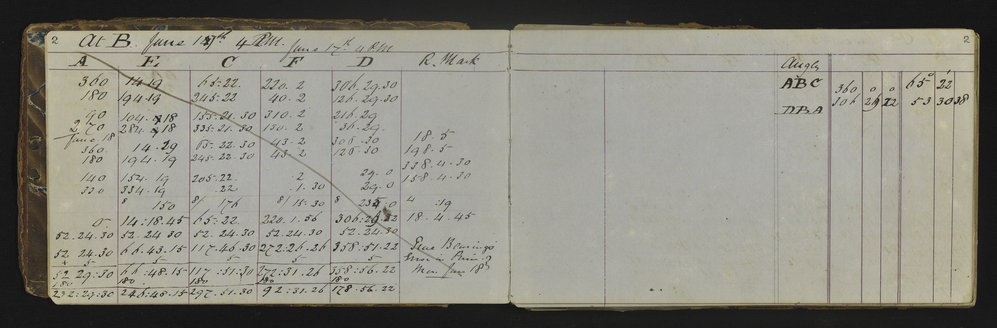 2
At B. June 17th 4 P.M. June 17th 4 P.M
A E. C F D R. Mark
360 14.19 65.22. 220.2 306.29.30
180 194.19 245.22 40.2 126.29.30
90 104.18 155.21.30 310.2 216.29
270 284.18 335.21.30 130.2 36.29.
June 18 18.5
360. 14.29 65.22.30 43.2 306.30 198.5
180 194.19 245.22.30 43.2 126.30
338.4.30
140 154.19 205.22. .2 29.0 158.4.30
330 334.19 .22 1.30 29.0
8 150 8/ 176 8/ 15.30 8 235.0 4 :19
0 14:18.45 65:22. 220.1.56 306:29.22 18.4.45
52.24.30 52.24.30 52.24.30 52.24.30 52.24.30
52.24.30 66.43.15 117.46.30 272:26.26 358:51.22 True Bearings
+ 5 5 5 5 5 Error in
52:29:30 66:48.15 117:51:30 272:31.26 358:56.22 Mer. Jan 18th
180 180 180 180 180
232:29:30 246:48.15 297.51.30 92:31.26 178.56.22
2
Angles
ABC 360 0 0 65° 22'
306 29 22 53 30 38
DBA